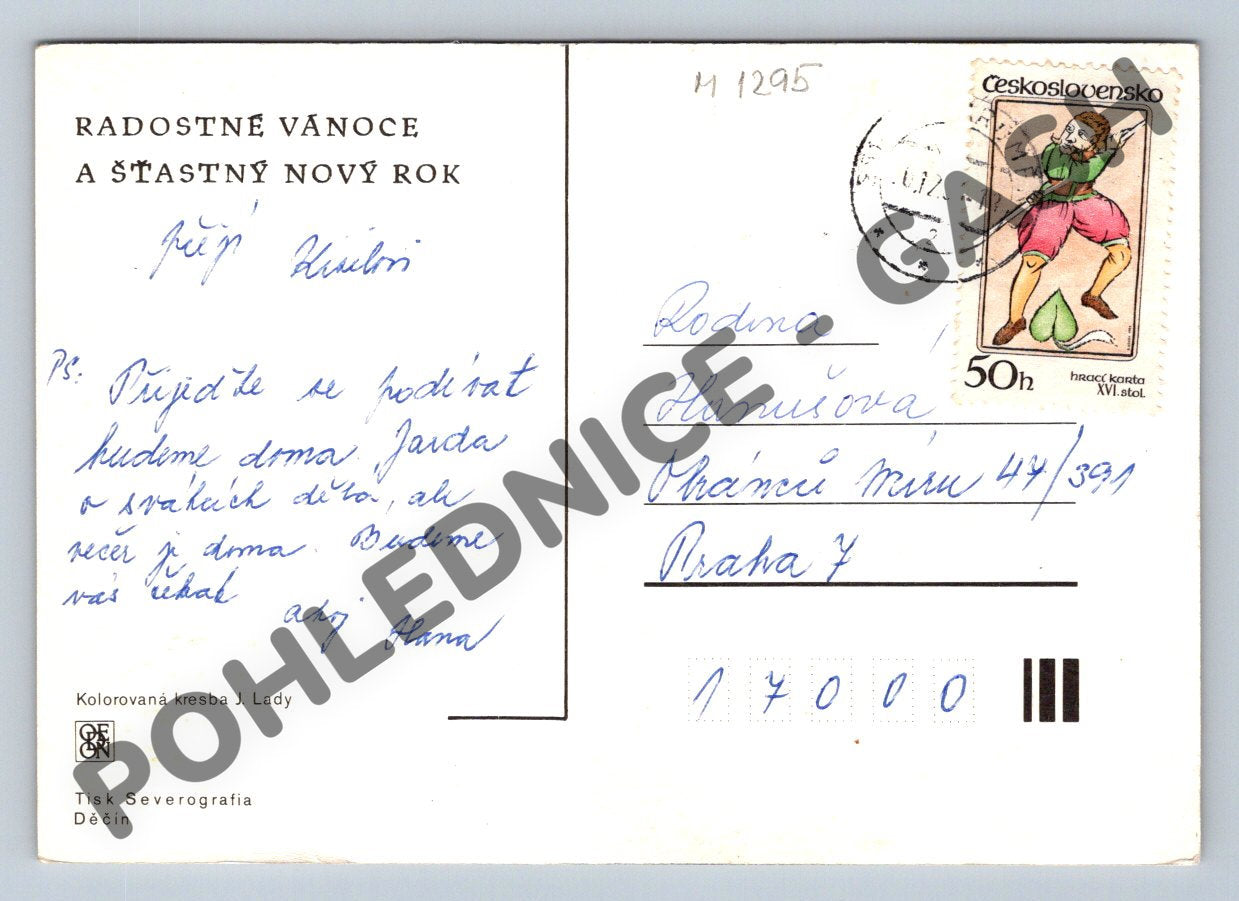 RADOSTNÉ VÁNOCE
A ŠŤASTNÝ NOVÝ ROK
přejí
PS: Přijeďte se podívat
budeme doma Jarda
o svátcích dělá, ale
večer je doma. Budeme
vás čekat
ahoj Hana
Kolorovaná kresba J. Lady
ODEON
Tisk Severografia
Děčín
M 1295
Československo
50h
hrací karta
XVI. stol.
Rodina
Hanušova
Obránců míru 47/391
Praha 7
17000
POHLEDNICE - GASH